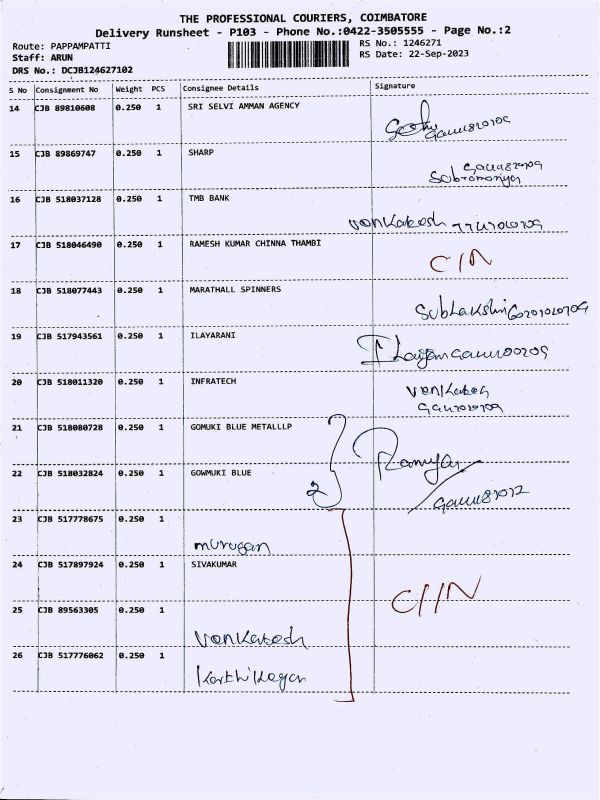 THE PROFESSIONAL COURIERS, COIMBATORE
Delivery Runsheet - P103 - Phone No.:0422-3505555 - Page No.:2
Route: PAPPAMPATTI RS No.: 1246271
Staff: ARUN RS Date: 22-Sep-2023
DRS No.: DCJB124627102
S No Consignment No Weight PCS Consignee Details Signature
14 CJB 89810608 0.250 1 SRI SELVI AMMAN AGENCY
15 CJB 89869747 0.250 1 SHARP
16 CJB 518037128 0.250 1 TMB BANK
Venkatesh
17 CJB 518046490 0.250 1 RAMESH KUMAR CHINNA THAMBI
C/N
18 CJB 518077443 0.250 1 MARATHALL SPINNERS
19 CJB 517943561 0.250 1 ILAYARANI
20 CJB 518011320 0.250 1 INFRATECH
21 CJB 518080728 0.250 1 GOMUKI BLUE METALLLP
22 CJB 518032824 0.250 1 GOWMUKI BLUE
2
23 CJB 517778675 0.250 1
murugan
24 CJB 517897924 0.250 1 SIVAKUMAR
C//N
25 CJB 89563305 0.250 1
Venkatesh
26 CJB 517776062 0.250 1